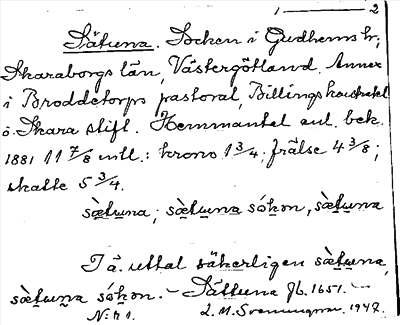 1 ——— 2
Sätuna. Socken i Gudhems hr,
Skaraborgs län, Västergötland. Annex
i Broddetorps pastorat, Billings kontrakt
o. Skara stift. Hemmantal enl. bek.
1881 11 7/8 mtl.: krono 1 3/4; frälse 4 3/8;
skatte 5 3/4.
sætuna; sætuna sókon, sætuna
I ä. uttal säkerligen sætuna,
sætuna sókon. – Sättuna Jb. 1651. –
1947.